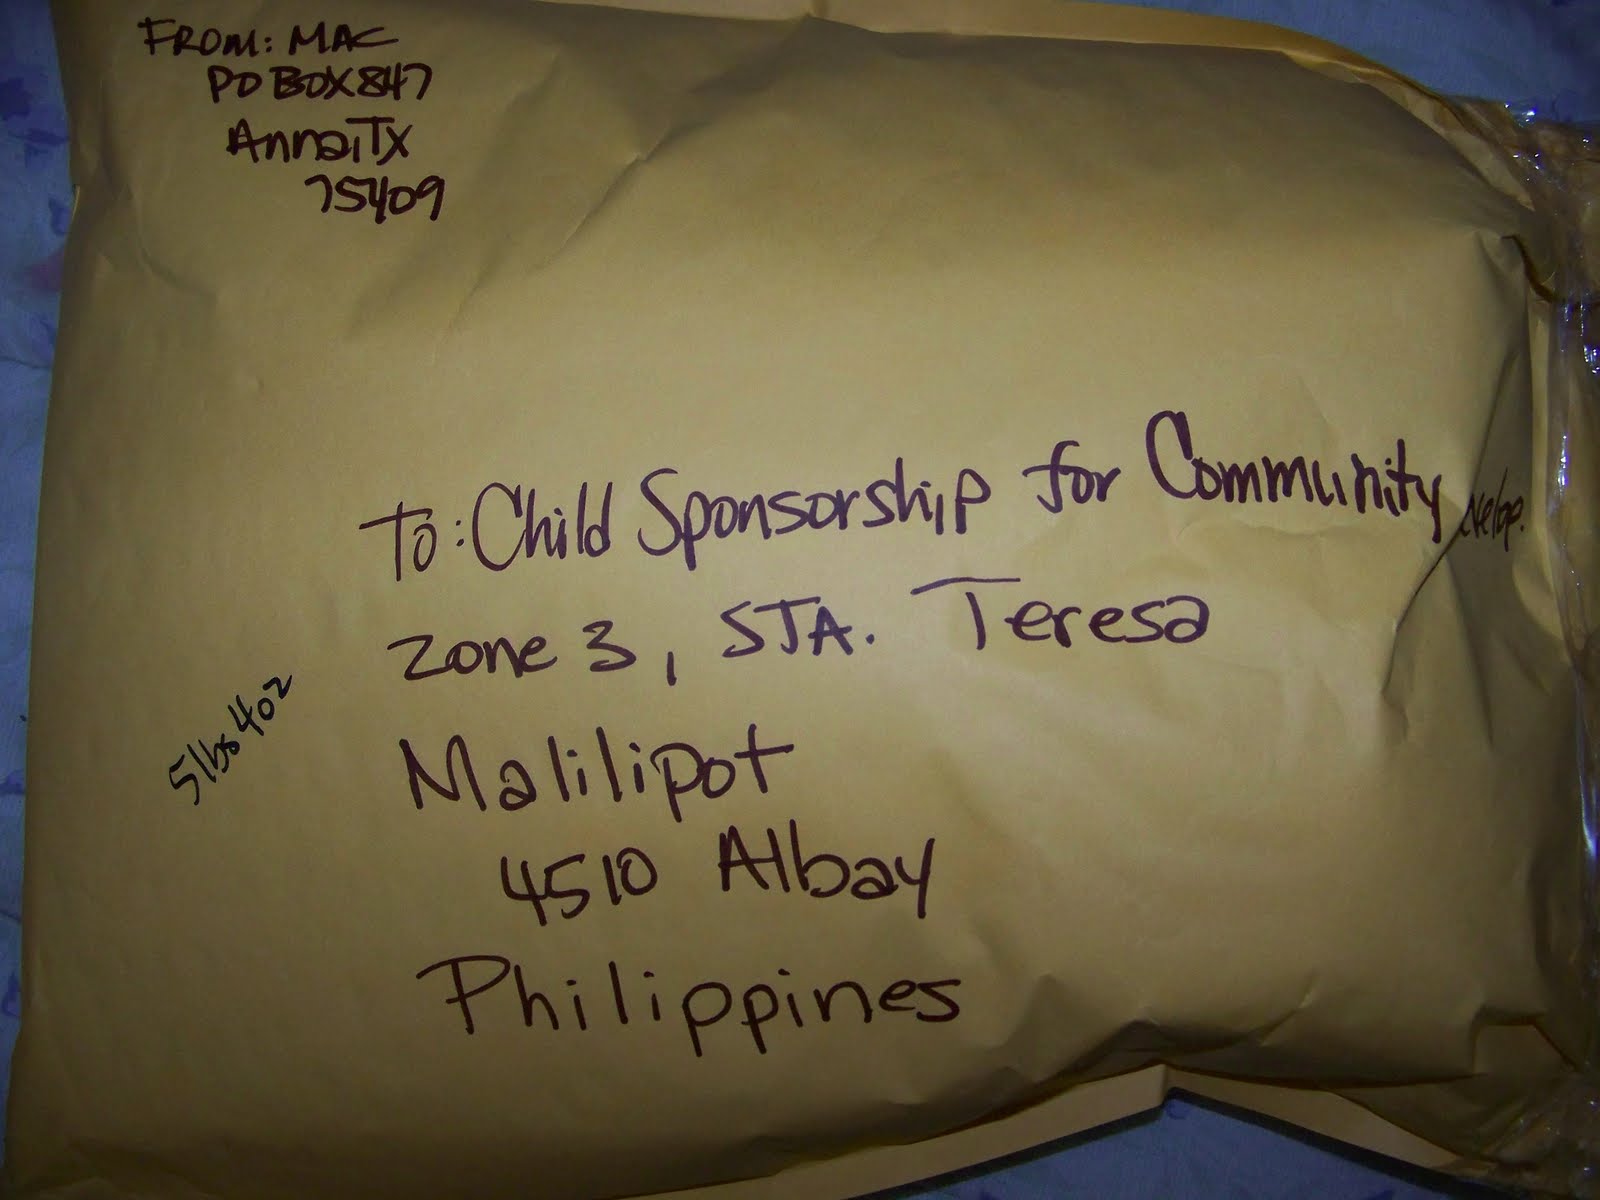 FROM: MAC
PO BOX 847
Anna, TX
75409
To: Child Sponsorship for Community
zone 3, STA. Teresa
5lbs 4oz
Malilipot
4510 Albay
Philippines